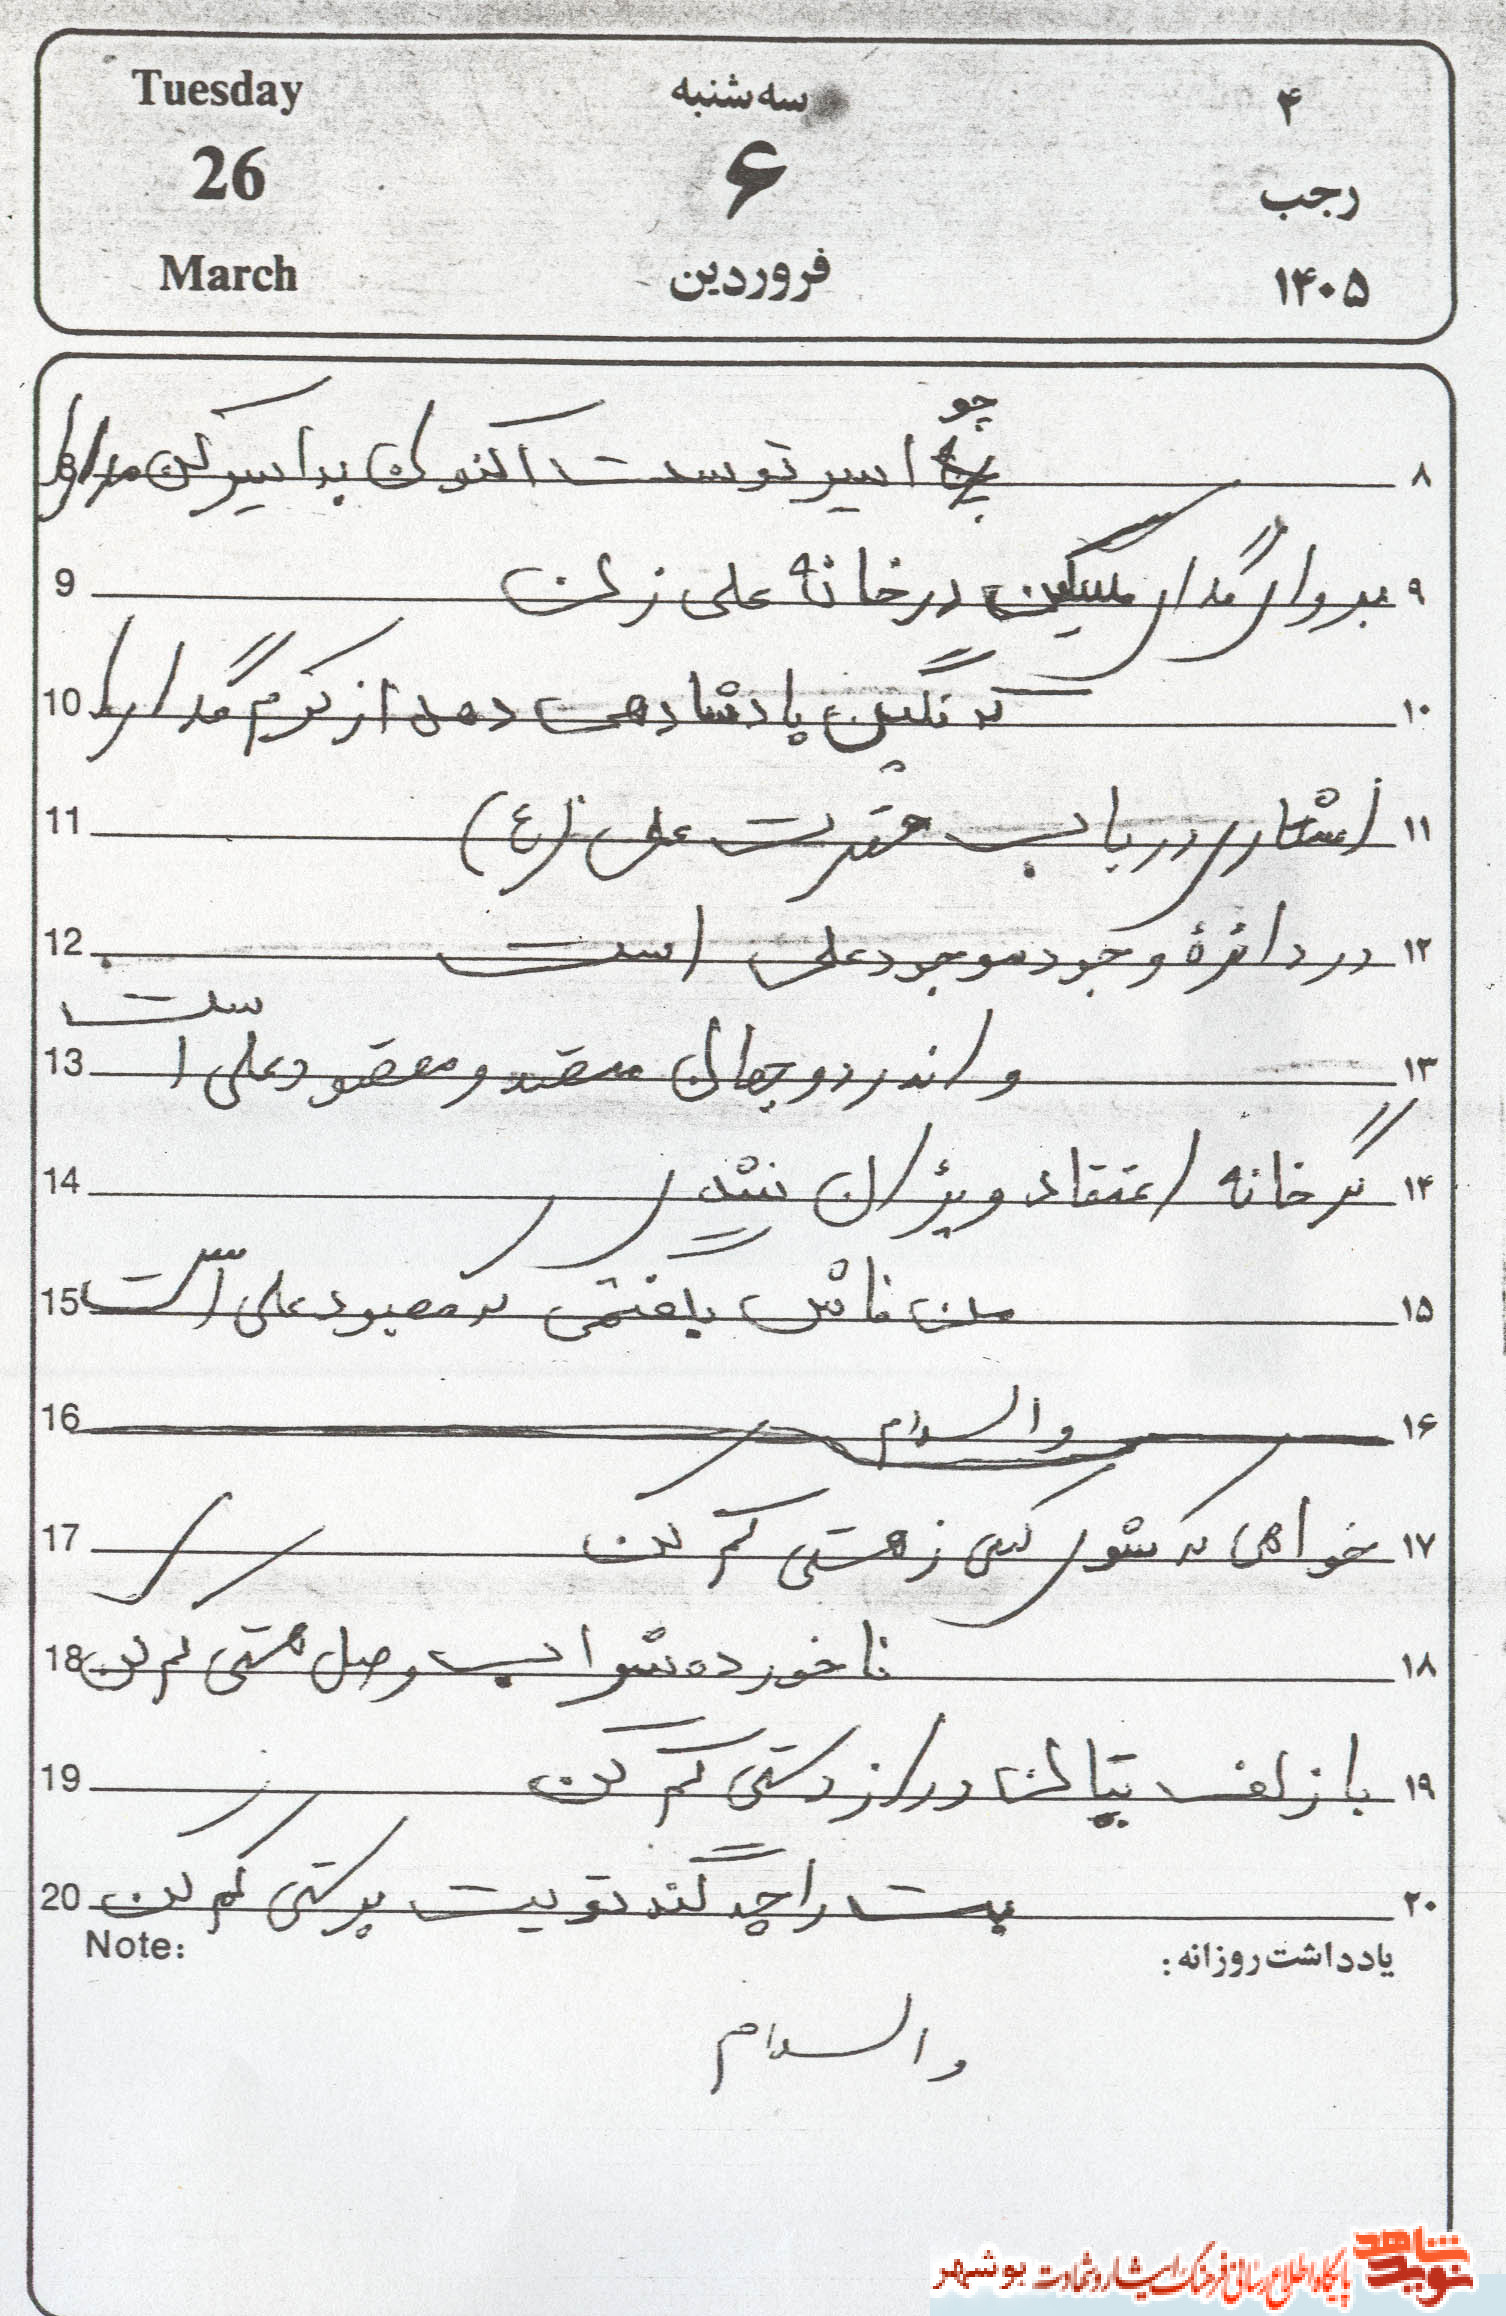 Tuesday سه‌شنبه ۴
26 ۶ رجب
March فروردین ۱۴۰۵
چو
۸ اسیر توست اکنون به اسیر کن مدارا 8
۹ برو ای گدای مسکین در خانه علی زن 9
۱۰ که نگین پادشاهی دهد از کرم گدا را 10
۱۱ اشعاری در باب حضرت علی (ع) 11
۱۲ در دائرهٔ وجود موجود علی است 12
۱۳ و اندر دو جهان مقصد و مقصود علی است 13
۱۴ گر خانه اعتقاد ویران نشدی 14
۱۵ من فاش بگفتمی که معبود علی است 15
۱۶ والسلام 16
۱۷ خواهی که شوی کسی ز هستی کم کن 17
۱۸ ناخورده شراب وصل مستی کم کن 18
۱۹ با زلف بتان دراز دستی کم کن 19
۲۰ بت را چه گنه تو بت پرستی کم کن 20
یادداشت روزانه: Note:
والسلام
نوید شاهد
پایگاه اطلاع رسانی فرهنگ ایثار و شهادت بوشهر